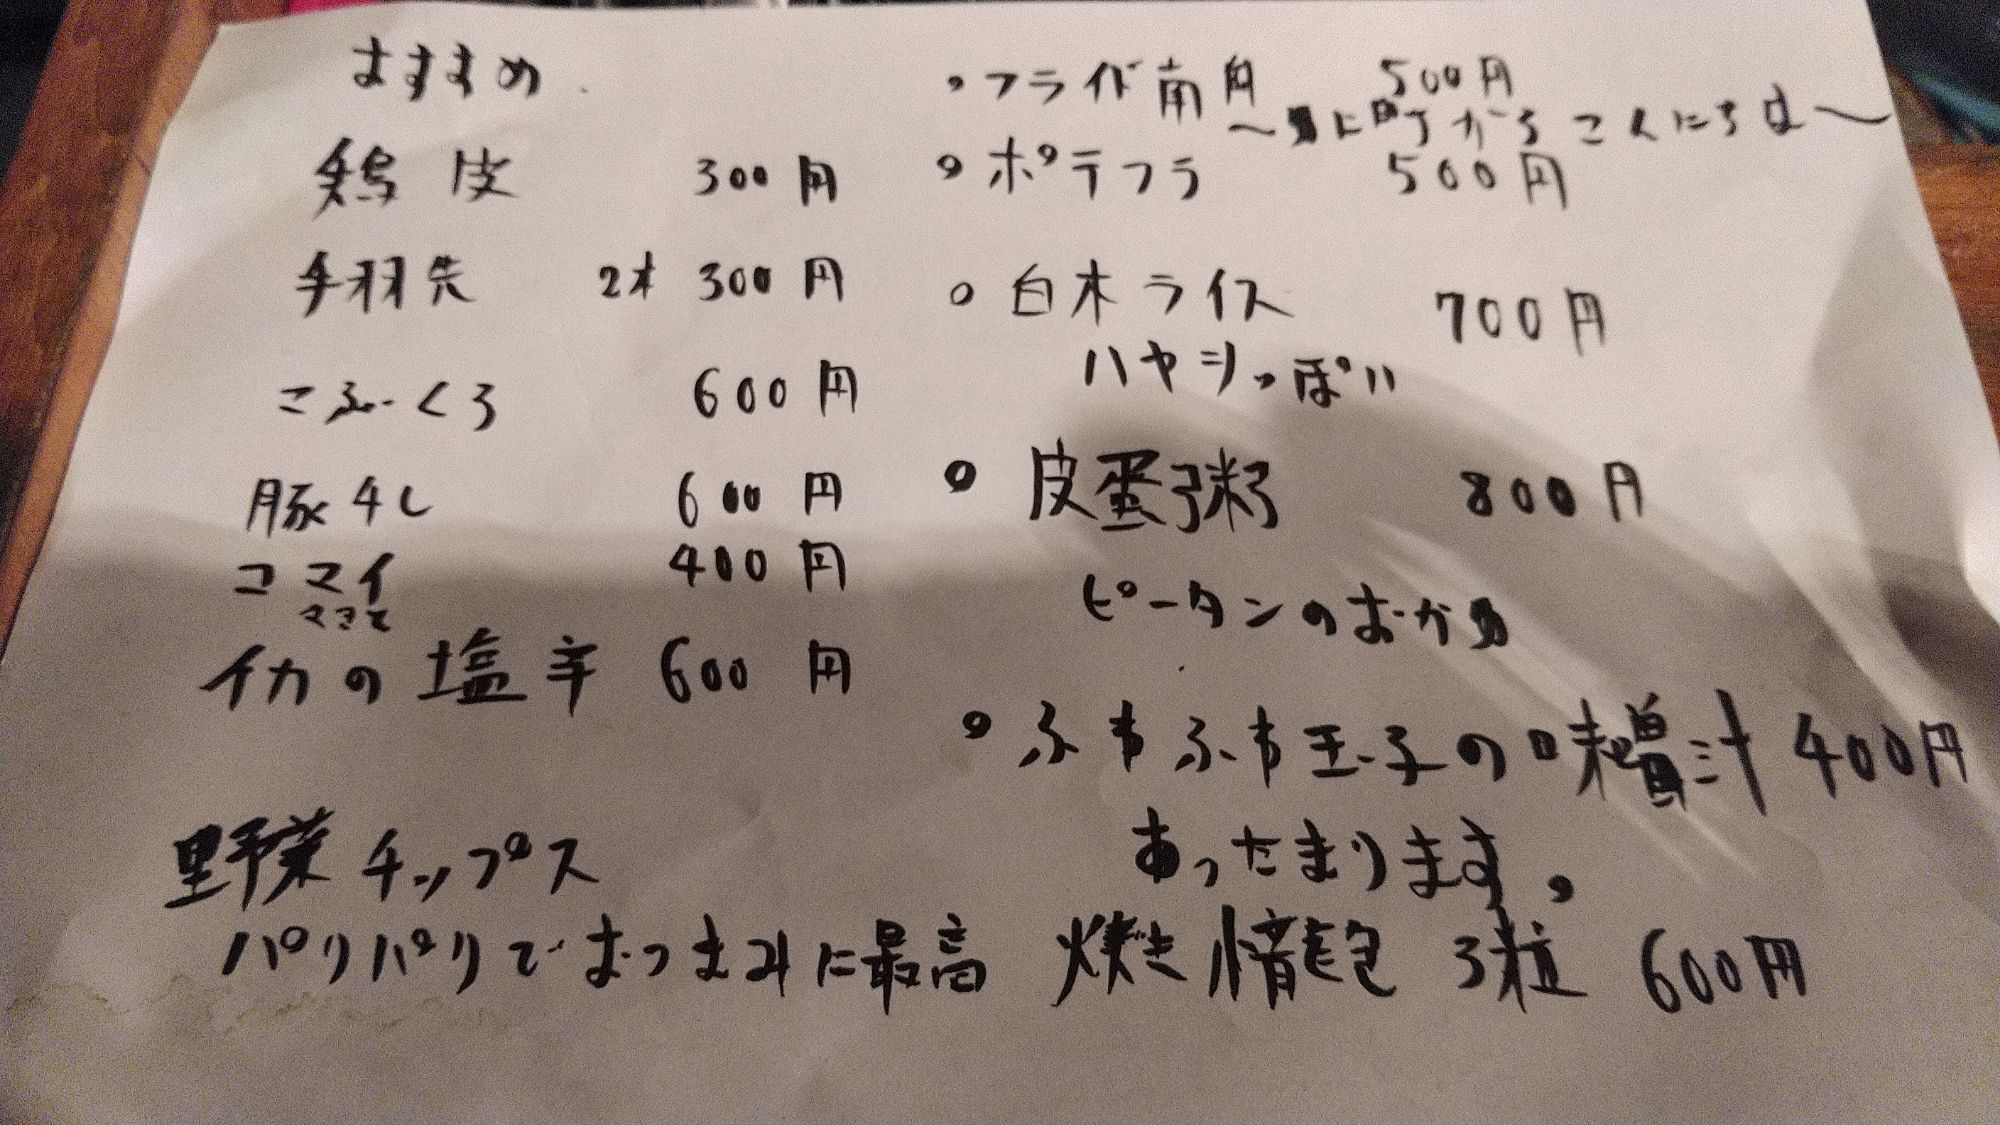 おすすめ
鶏皮 300円
手羽先 2本 300円
こぶくろ 600円
豚串し 600円
コマイ 400円
イカの塩辛 600円
野菜チップス
パリパリでおつまみに最高
・フライド南 500円
からこんにちは〜
・ポテフラ 500円
・白木ライス 700円
ハヤシっぽい
・皮蛋粥 800円
ピータンのおかゆ
・ふわふわ玉子の味噌汁 400円
あったまります。
焼き 3粒 600円